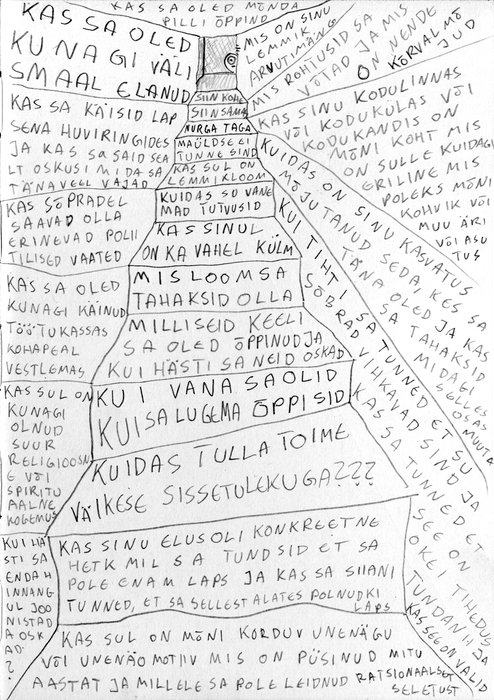 KAS SA OLED MÕNDA
PILLI ÕPPIND
KAS SA OLED
KUNAGI VÄLI
SMAAL ELANUD
MIS ON SINU
LEMMIK
ARVUTIMÄNG
MIS ROHTUSID SA
VÕTAD JA MIS
ON NENDE
KÕRVALMÕ
JUD
SIIN KOHE
SIINSAMA
NURGA TAGA
MA ÜLDSE EI
TUNNE SIND
KAS SUL ON
LEMMIKLOOM
KAS SA KÄISID LAP
SENA HUVIRINGIDES
JA KAS SA SAID SEA
LT OSKUSI MIDA SA
TÄNAVEEL VAJAD
KAS SINU KODULINNAS
VÕI KODUKÜLAS VÕI
KODUKANDIS ON
MÕNI KOHT MIS
ON SULLE KUIDAGI
ERILINE MIS
POLEKS MÕNI
KOHVIK VÕI
MUU ÄRI
VÕI ASU
TUS
KAS SÕPRADEL
SAAVAD OLLA
ERINEVAD POLII
TILISED VAATED
KUIDAS SU VANE
MAD TUTVUSID
KUIDAS ON SINU KASVATUS
MÕJUTANUD SEDA, KES SA
TÄNA OLED JA KAS
SA TAHAKSID
MIDAGI
SELLES
OSAS
MUUTA
KAS SINUL
ON KA VAHEL KÜLM
KAS SA OLED
KUNAGI KÄINUD
TÖÖTUKASSAS
KOHAPEAL
VESTLEMAS
MIS LOOM SA
TAHAKSID OLLA
KUI TIHTI SA TUNNED ET SU
SÕBRAD VIHKAVAD SIND JA
KAS SA TUNNED ET
SEE ON
OKEI TIHEDUS
TUNDA NII JA
KAS SEE ON VALID
MILLISEID KEELI
SA OLED ÕPPINUD JA
KUI HÄSTI SA NEID OSKAD
KAS SUL ON
KUNAGI
OLNUD
SUUR
RELIGIOOSN
E VÕI
SPIRITU
AALNE
KOGEMUS
KUI VANA SA OLID
KUI SA LUGEMA ÕPPISID
KUIDAS TULLA TOIME
VÄIKESE SISSETULEKUGA???
KUI HÄ
STI SA
ENDA H
INNANG
UL JOO
NISTAD
A OSK
AD
?
KAS SINU ELUS OLI KONKREETNE
HETK MIL SA TUNDSID ET SA
POLE ENAM LAPS JA KAS SA SIIANI
TUNNED, ET SA SELLEST ALATES POLNUDKI
LAPS
KAS SUL ON MÕNI KORDUV UNENÄGU
VÕI UNENÄO MOTIIV MIS ON PÜSINUD MITU
AASTAT JA MILLELE SA POLE LEIDNUD RATSIONAALSET
SELETUST